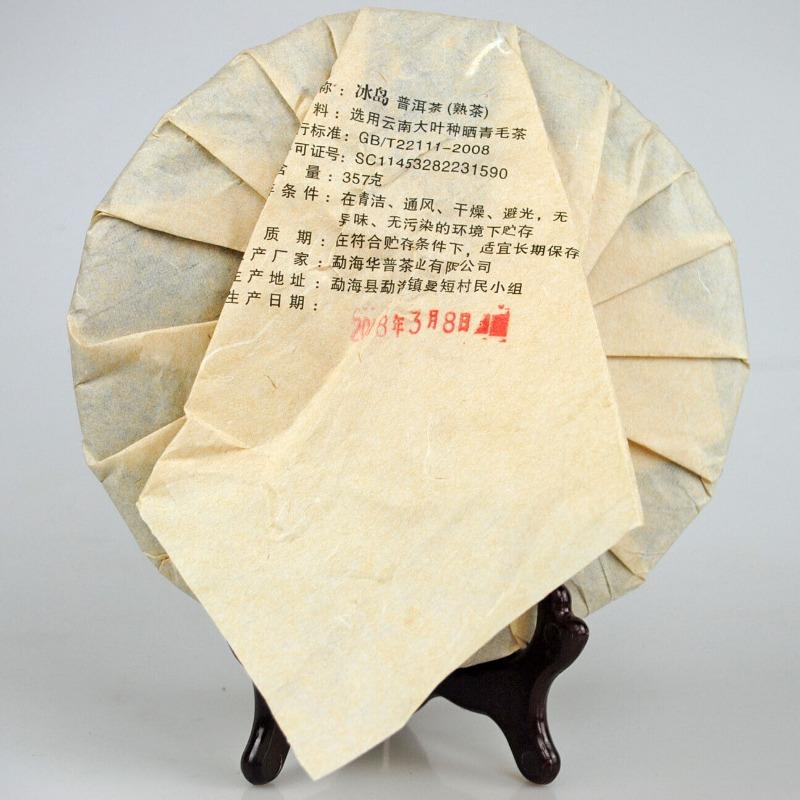 称：冰岛 普洱茶(熟茶)
料：选用云南大叶种晒青毛茶
行标准：GB/T22111-2008
可证号：SC11453282231590
含 量：357克
条件：在清洁、通风、干燥、避光，无
异味、无污染的环境下贮存
质 期：在符合贮存条件下，适宜长期保存
产厂家：勐海华普茶业有限公司
生产地址：勐海县勐 镇曼短村民小组
生产日期：
2018年3月8日